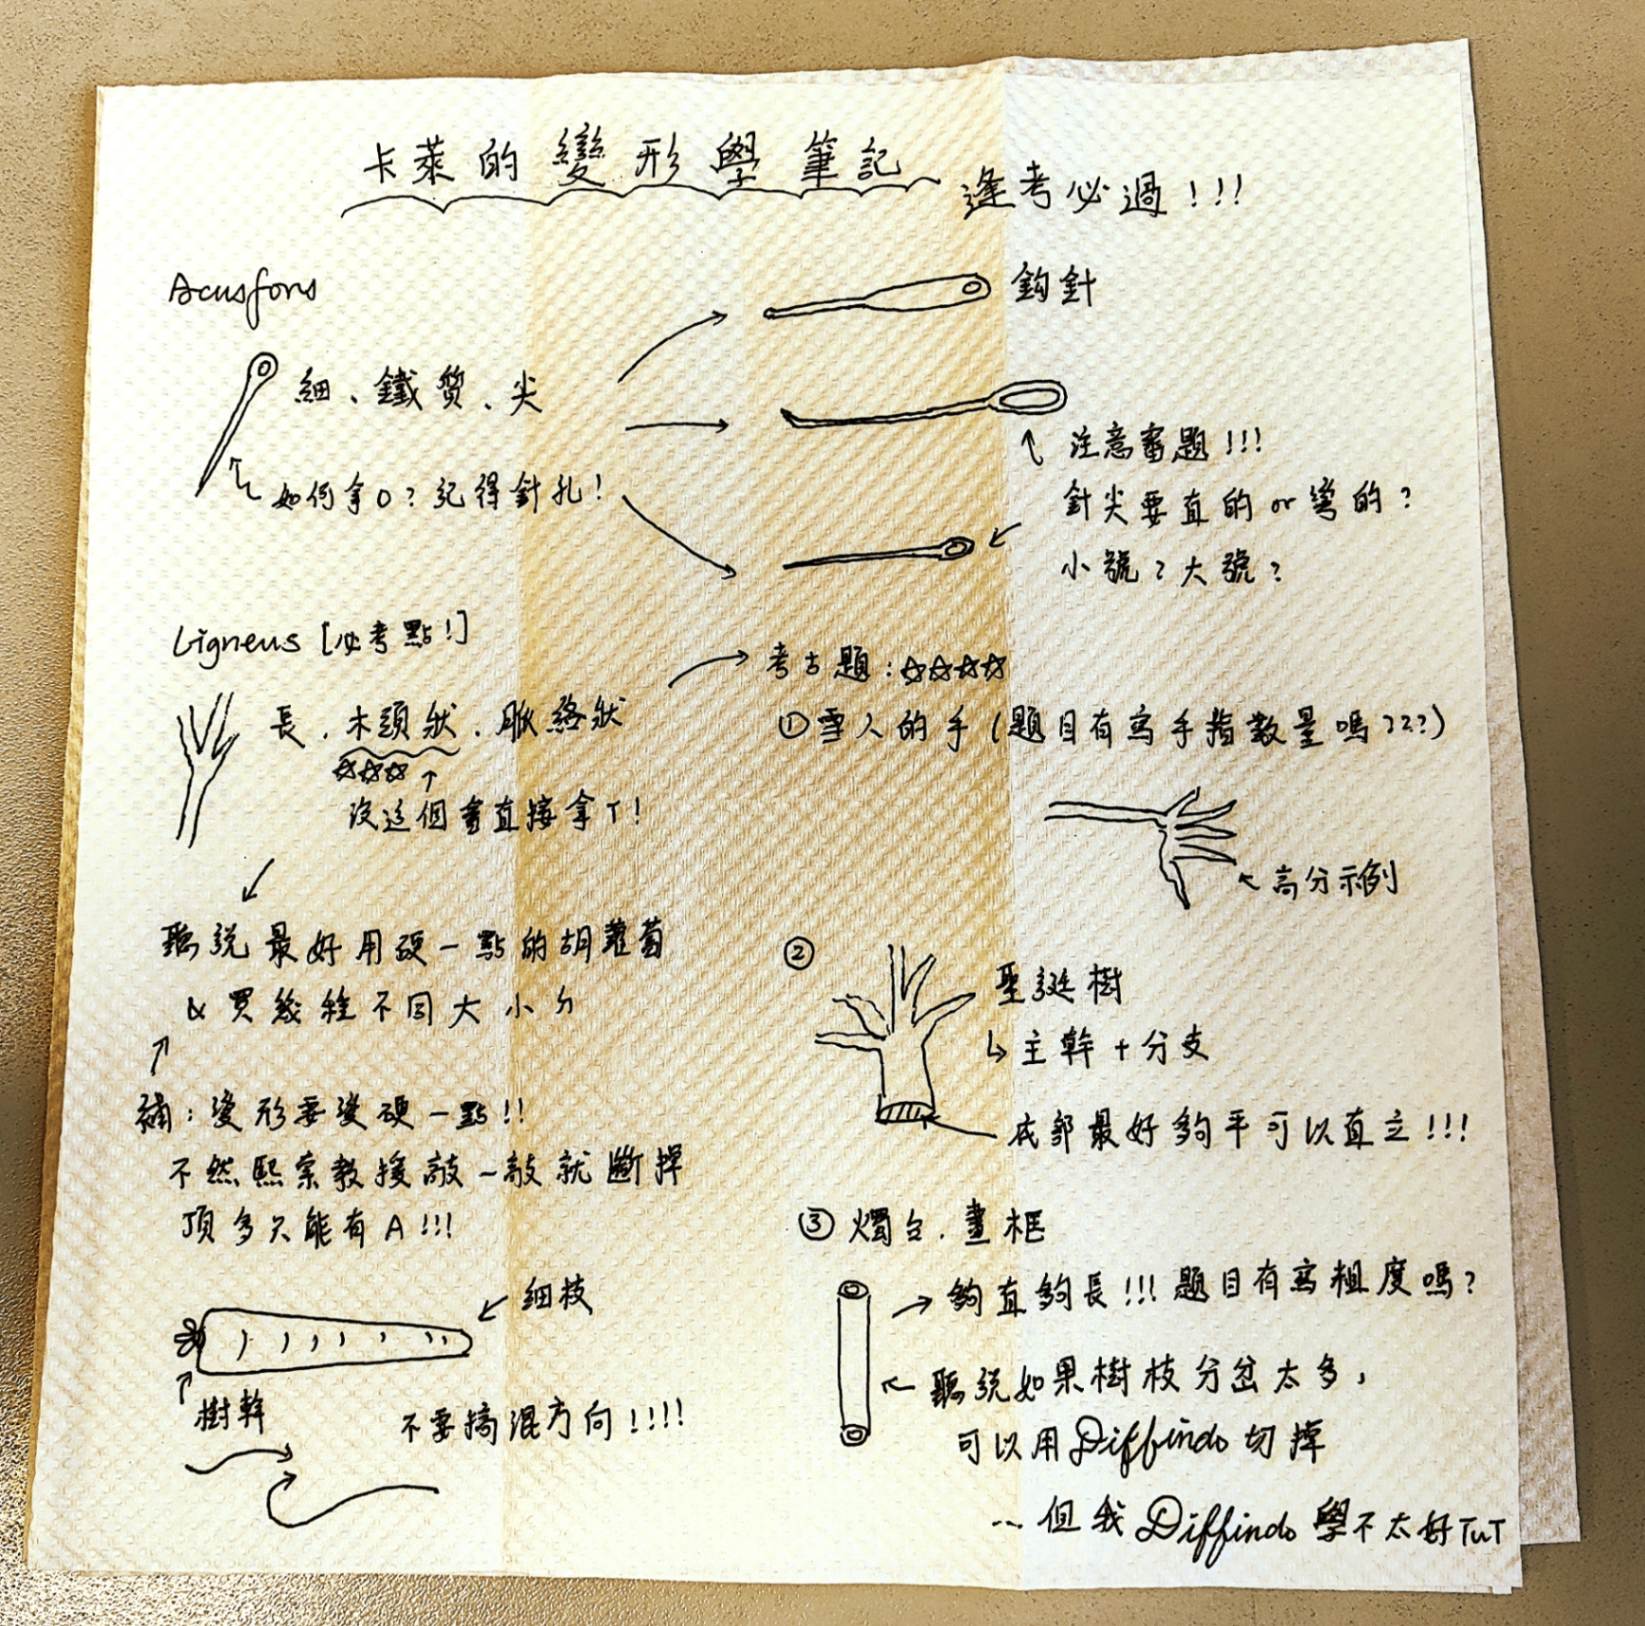 卡萊的變形學筆記
逢考必過!!!
Acusfors
細、鐵質、尖
如何拿O?記得針孔!
鈎針
注意審題!!!
針尖要直的or彎的?
小號?大號?
Ligneus [必考點!]
長、木頭狀、脈絡狀
沒這個會直接拿T!
聽說最好用硬一點的胡蘿蔔
&買幾種不同大小ㄉ
補:變形要變硬一點!!
不然熙索教授敲一敲就斷掉
頂多只能有A!!!
細枝
樹幹
不要搞混方向!!!!
考古題:☆☆☆☆
①雪人的手(題目有寫手指數量嗎???)
高分示例
②
聖誕樹
主幹+分支
底部最好夠平可以直立!!!
③燭台、畫框
夠直夠長!!!題目有寫粗度嗎?
聽說如果樹枝分岔太多,
可以用Diffindo切掉
...但我Diffindo學不太好TuT